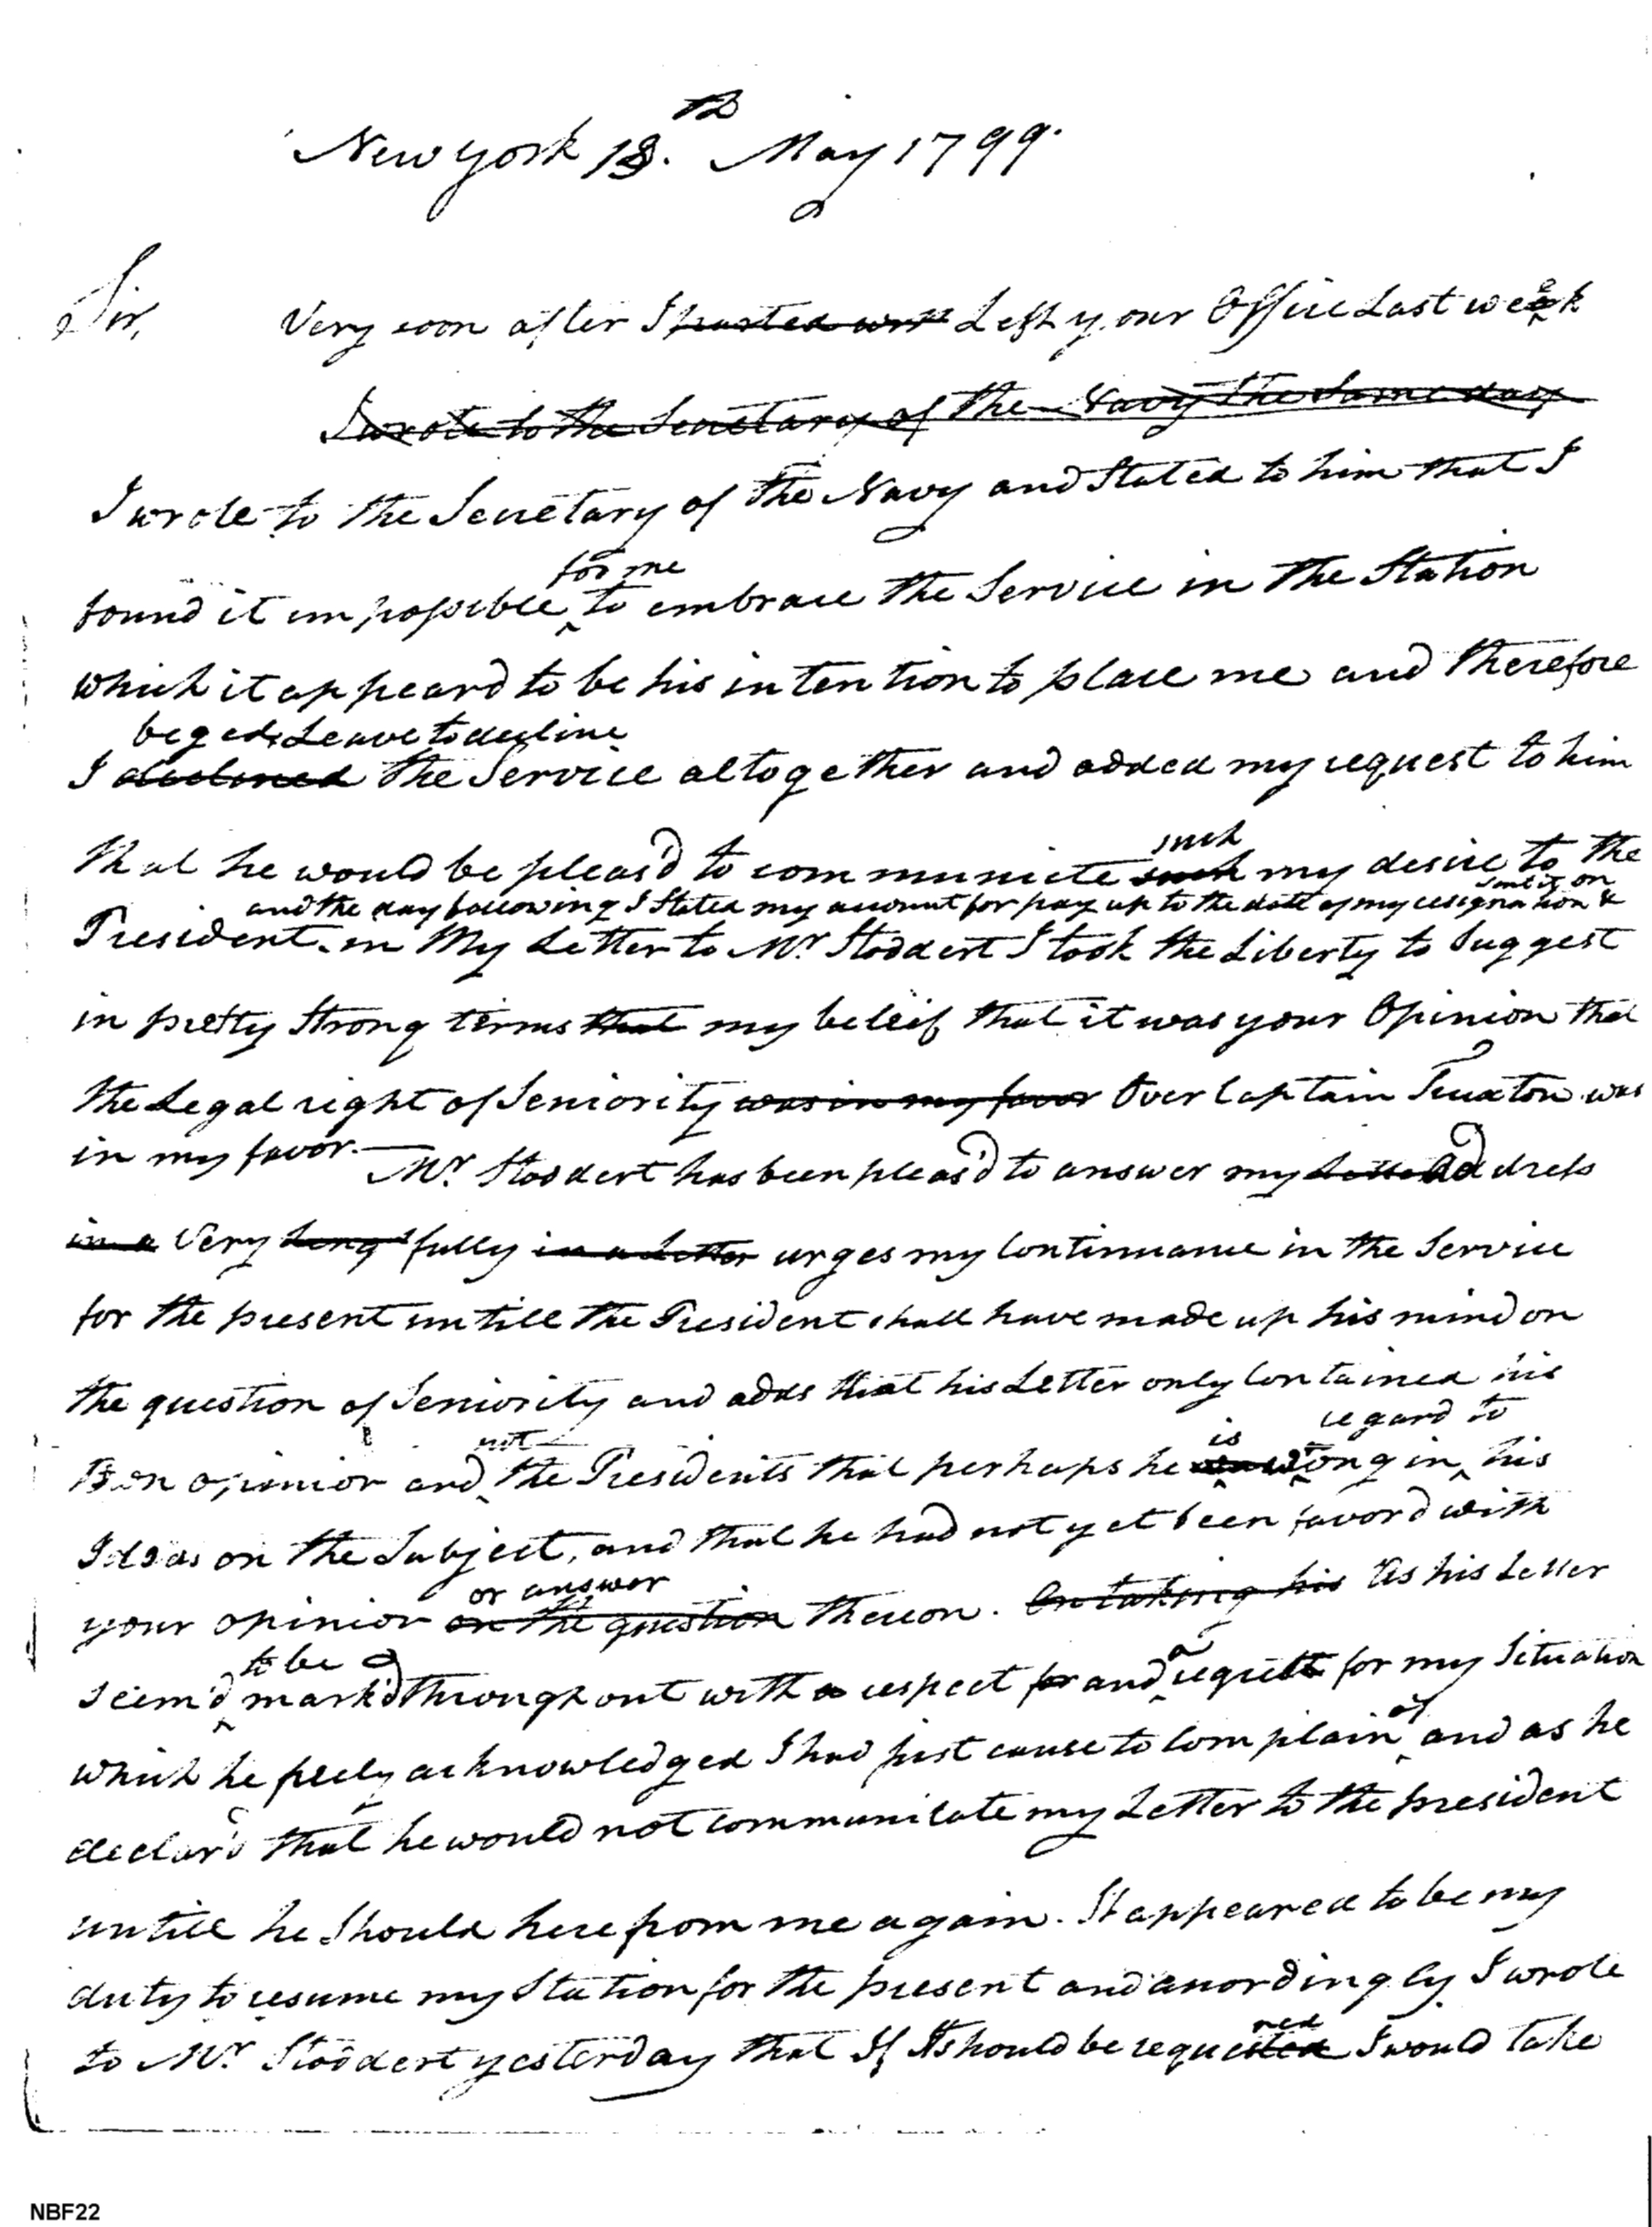 th
New york 18. May 1799.
Sir,
Very soon after I parted with Left your Office Last week
I wrote to the Secretary of the Navy the Same day
I wrote to the Secretary of the Navy and Stated to him that I
for me
found it impossible to embrace the Service in the Station
which it appeard to be his intention to place me and therefore
beged Leave to decline
I declined the Service altogether and added my request to him
such
that he would be pleas'd to communicte such my desire to the
sent it on
and the day following I Stated my account for pay up to the date of my resignation &
President. in My Letter to Mr. Stoddert I took the Liberty to Suggest
in pretty Strong terms that my beleif that it was your Opinion that
the Legal right of Seniority was in my favor Over Captain Truxton was
in my favor. — Mr. Stoddert has been pleas'd to answer my Letter Address
in a Very Long fully in a Letter urges my Continuance in the Service
for the present untill the President shall have made up his mind on
the question of Seniority and adds that his Letter only Contained his
not is regard to
own opinion and the Presidents that perhaps he was wrong in his
Ideas on the Subject, and that he had not yet been favord with
or answer
your opinion on the question thereon. On taking his As his Letter
to be a
Seem'd mark'd throughout with a respect for and regrett for my Situation
of
which he freely acknowledged I had just cause to Complain and as he
declar'd that he would not communicate my Letter to the president
untill he Should here from me again. It appeared to be my
duty to resume my Station for the present and accordingly I wrote
red
to Mr. Stoddert yesterday that If It should be requested I would take
NBF22